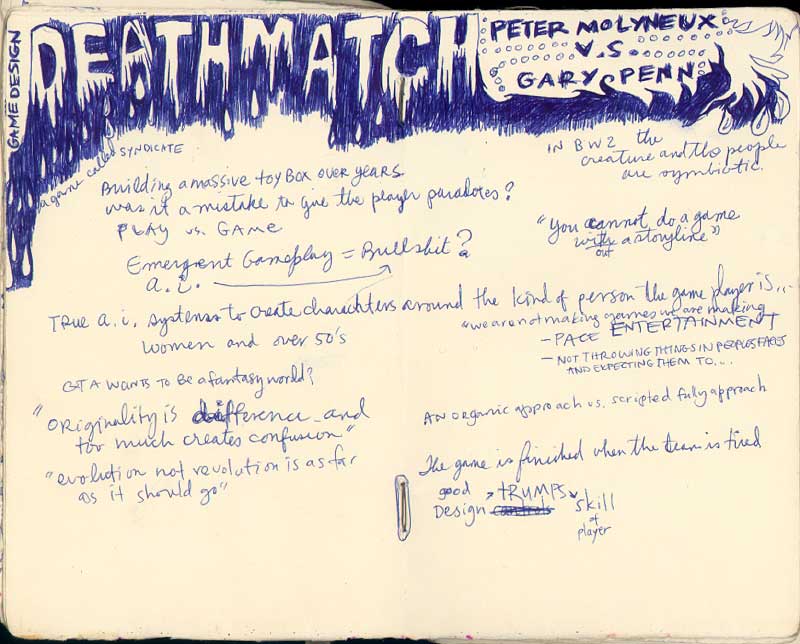 GAME DESIGN
DEATHMATCH
PETER MOLYNEUX
V.S.
GARY PENN
a game called SYNDICATE
Building a massive toy Box over years
was it a mistake to give the player paradoxes?
PLAY vs. GAME
Emergent Gameplay = Bullshit?
a.i.
TRUE a.i. systems to create charachters around the kind of person the game player is...
women and over 50's
GTA WANTS to BE a fantasy world?
"ORiginality is difference and
too much creates confusion"
"evolution not revolution is as far
as it should go"
IN BW2 the
creature and the people
are symbiotic.
"You cannot do a game
with a storyline"
out
"we are not making games we are making
ENTERTAINMENT
- PACE
- NOT THROWING THINGS IN PEOPLES FACES
AND EXPECTING THEM TO...
AN ORGANIC approach vs. scripted fully approach
The game is finished when the team is tired
good > TRUMPS
Design controls skill
of
player